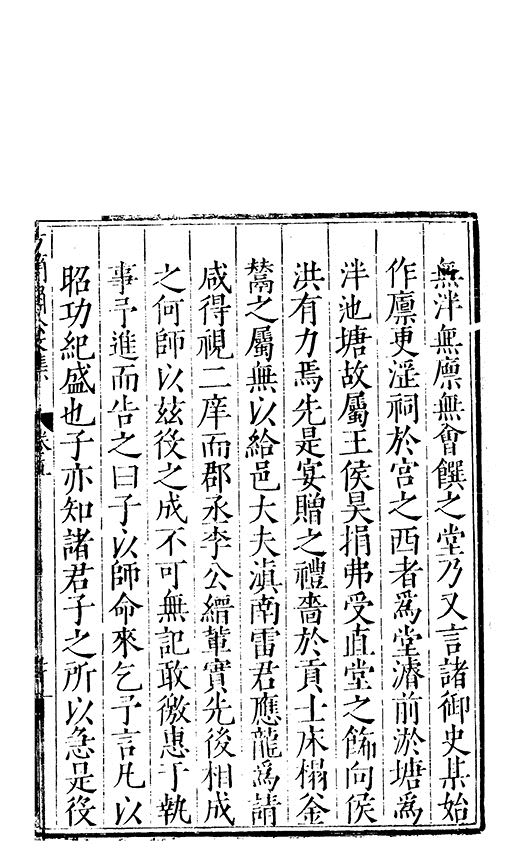 無泮無廪無會饌之堂乃又言諸御史某始
作廪更淫祠於宫之西者爲堂濬前淤塘爲
泮池塘故屬王侯昊捐弗受直堂之餙向侯
洪有力焉先是宴贈之禮嗇於貢士床榻釡
鬵之屬無以給邑大夫滇南雷君應龍爲請
咸得視二庠而郡丞李公縉葷實先後相成
之何師以兹役之成不可無記敢徼惠于執
事予進而告之曰子以師命來乞予言凡以
昭功紀盛也子亦知諸君子之所以急是役
卷五